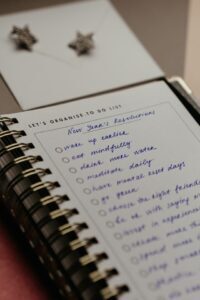 LET'S ORGANISE TO DO LIST
New Year's Resolutions
wake up earlier
eat mindfully
drink more water
meditate daily
have mental rest days
go green
choose the right friends
be ok with saying no
invest in experiences
spend more